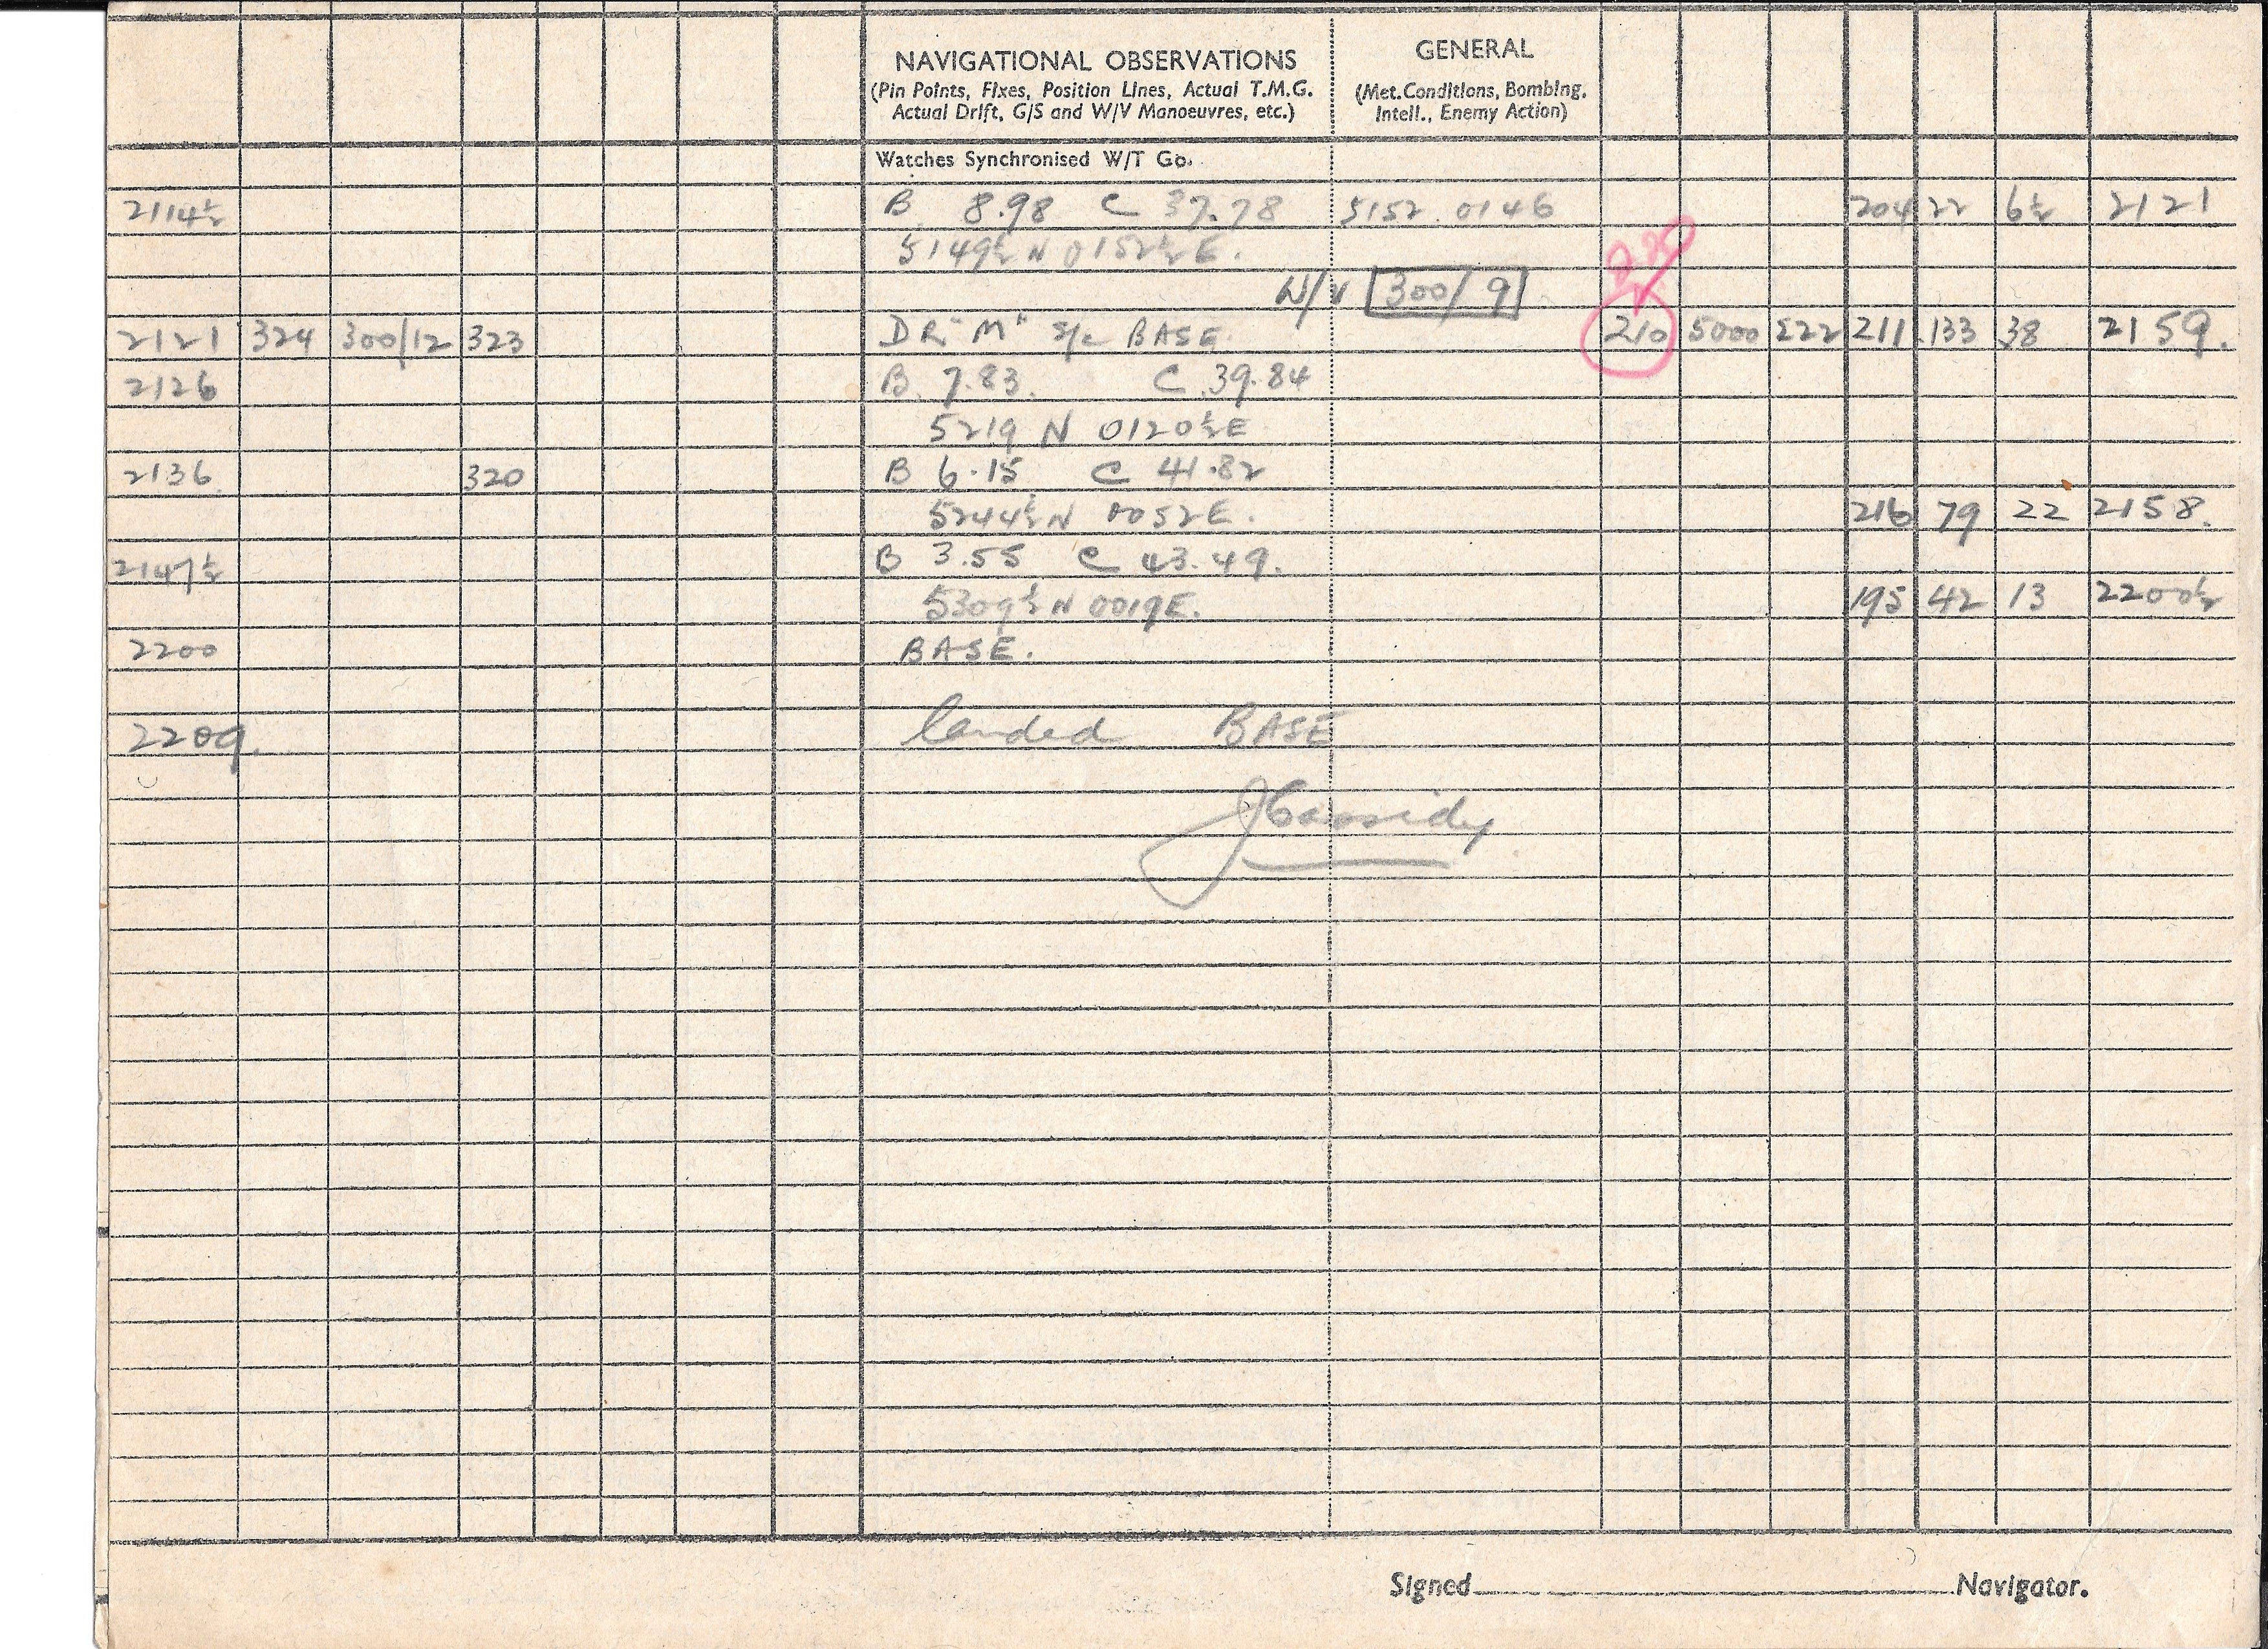 NAVIGATIONAL OBSERVATIONS
(Pin Points, Fixes, Position Lines, Actual T.M.G.
Actual Drift, G/S and W/V Manoeuvres, etc.)
GENERAL
(Met.Conditions, Bombing,
Intell., Enemy Action)
Watches Synchronised W/T Go.
2114½ B 8.98 C 37.78 5152 0146 204 22 6½ 2121
5149½ N 0152½ E.
W/V 300/9
2121 324 300/12 323 DR "M" s/c BASE 210 5000 222 211 133 38 2159.
2126 B 7.83. C 39.84
5219 N 0120½E
2136 320 B 6.15 C 41.82
5244½N 0052E. 216 79 22 2158.
2147½ B 3.55 C 43.49.
5309½N 0019E. 195 42 13 2200½
2200 BASE.
2209. landed BASE
J Cassidy
Signed Navigator.